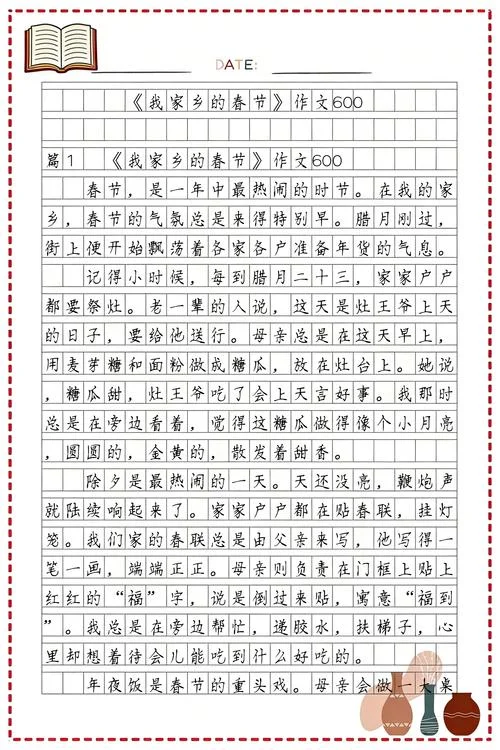 DATE:
《我家乡的春节》作文600
篇1 《我家乡的春节》作文600
春节，是一年中最热闹的时节。在我的家
乡，春节的气氛总是来得特别早。腊月刚过，
街上便开始飘荡着各家各户准备年货的气息。
记得小时候，每到腊月二十三，家家户户
都要祭灶。老一辈的人说，这天是灶王爷上天
的日子，要给他送行。母亲总是在这天早上，
用麦芽糖和面粉做成糖瓜，放在灶台上。她说
，糖瓜甜，灶王爷吃了会上天言好事。我那时
总是在旁边看着，觉得这糖瓜做得像个小月亮
，圆圆的，金黄的，散发着甜香。
除夕是最热闹的一天。天还没亮，鞭炮声
就陆续响起来了。家家户户都在贴春联，挂灯
笼。我们家的春联总是由父亲来写，他写得一
笔一画，端端正正。母亲则负责在门框上贴上
红红的“福”字，说是倒过来贴，寓意“福到
”。我总是在旁边帮忙，递胶水，扶梯子，心
里却想着待会儿能吃到什么好吃的。
年夜饭是春节的重头戏。母亲会做一大桌